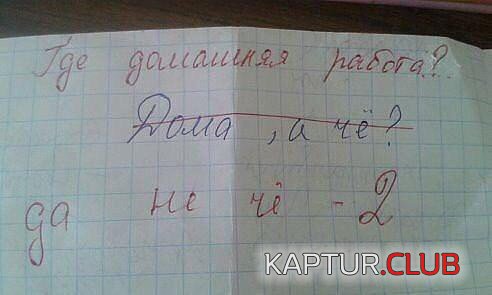 Где домашняя работа?
Дома, а чё?
да не чё - 2
KAPTUR.CLUB